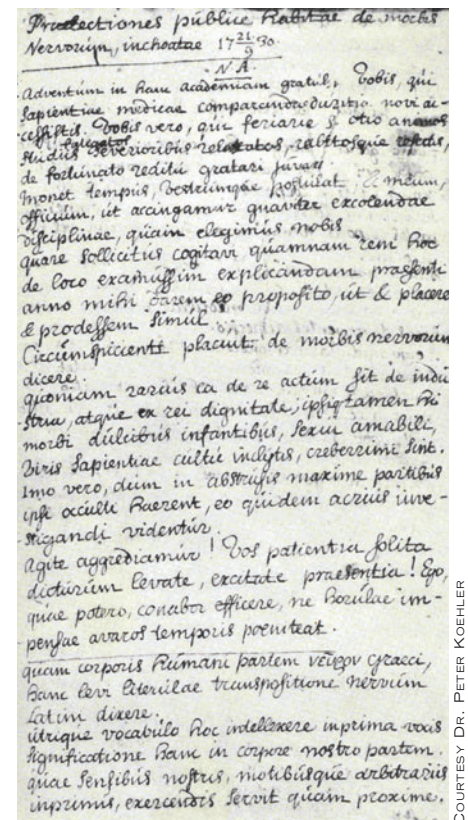 Praelectiones publice habitae de morbis
Nervorum, inchoatae 17 21/9 30.
N A.
Adventum in hanc academiam gratul, Vobis, qui
sapientiae medicae comparandae novi ac-
cessistis. Vobis vero, qui feriarum otio animos
studiis severioribus relaxatos, habitosque refectis,
de fortunato reditu gratari juvat.
monet tempus, vestrumque postulat, & meum,
officium, ut accingamur gnaviter excolendae
disciplinae, quam elegimus nobis.
quare sollicitus cogitavi, quamnam rem hoc
de loco examussim explicandam praesenti
anno mihi darem eo proposito, ut & placere
& prodessem simul.
Circumspicienti placuit de morbis nervorum
dicere.
quoniam rarius ea de re actum sit de indu
stria, atque ex rei dignitate; ipsi tamen hi
morbi dulcibus infantibus, sexui amabili,
viris sapientiae cultu inclytis, creberrimi sint.
Imo vero, dum in abstrusis maxime partibus
ipsi occulti haerent, eo quidem acrius inve-
stigandi videntur.
agite aggrediamur! Vos patientia solita
dicturum levate, excitate praesentia! Ego,
quae potero, conabor efficere, ne horulae im-
pensae avaros temporis poeniteat.
quam corporis humani partem νεῦρον graeci,
hanc levi literulae transpositione nervum
Latini dixere.
utrique vocabulo hoc intellexere inprima vocis
significatione hanc in corpore nostro partem.
quae sensibus nostris, motibusque arbitrariis
inprimis, exercendis servit quam proxime.
COURTESY DR. PETER KOEHLER